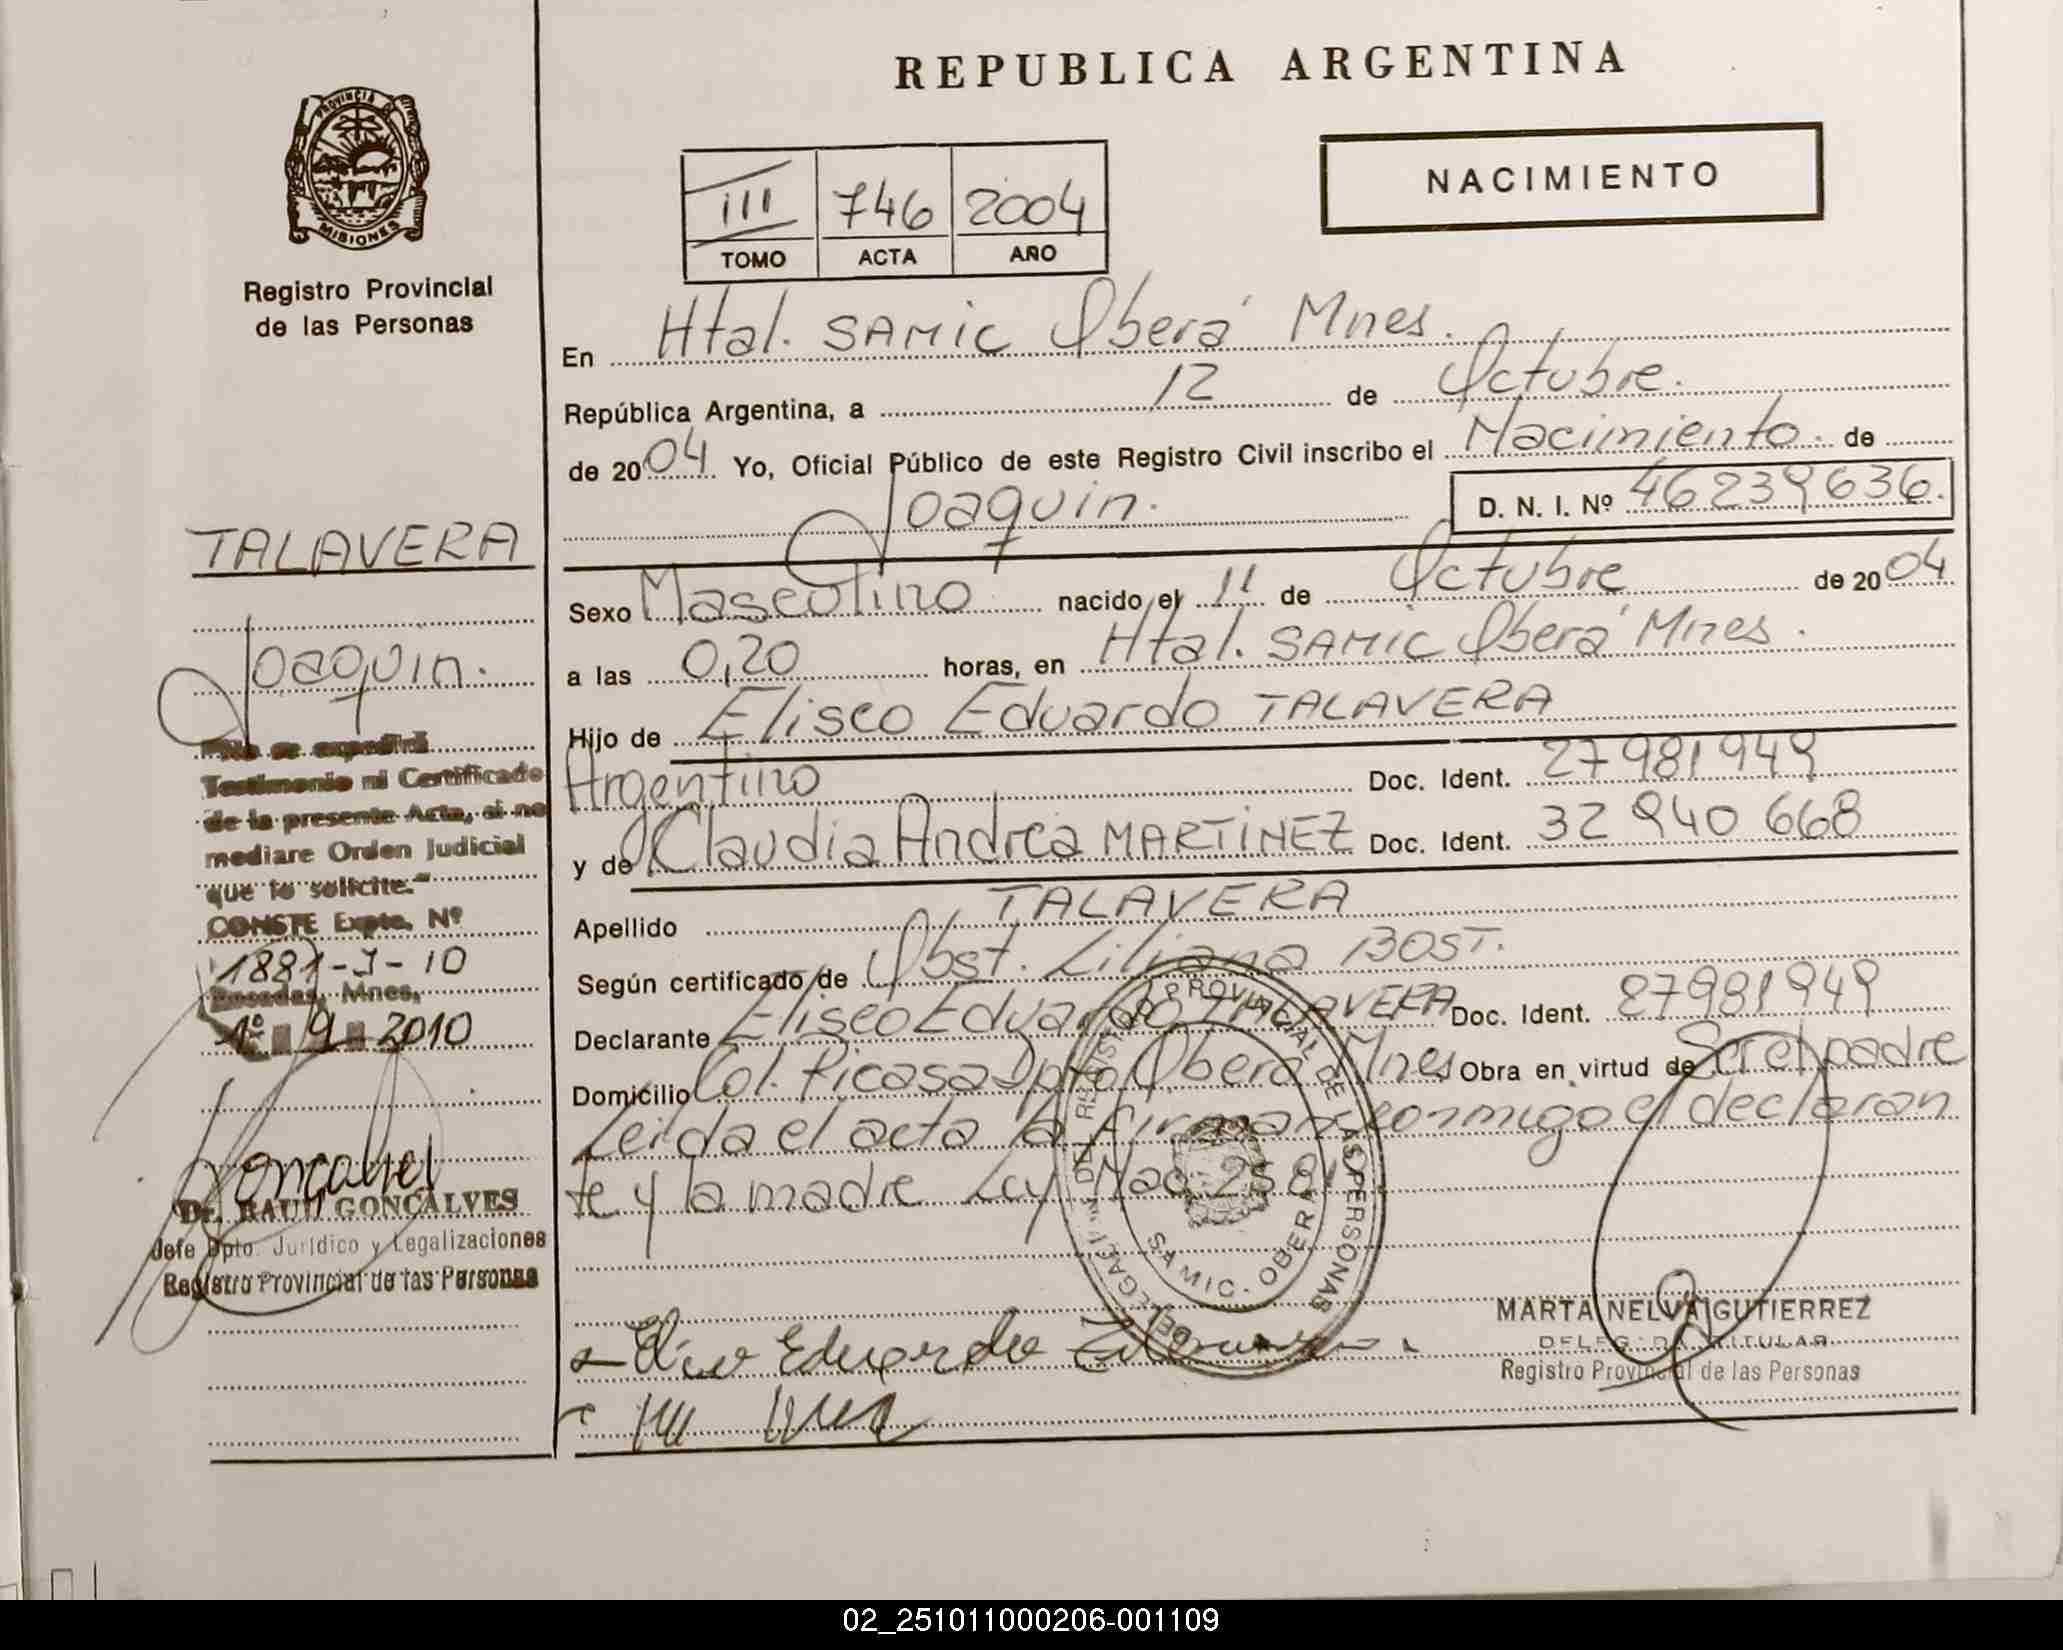 REPUBLICA ARGENTINA
PROVINCIA
MISIONES
Registro Provincial
de las Personas
III 746 2004
TOMO ACTA AÑO
NACIMIENTO
En Htal. SAMIC Oberá Mnes.
República Argentina, a 12 de Octubre.
de 2004 Yo, Oficial Público de este Registro Civil inscribo el Nacimiento. de
Joaquin.
D. N. I. Nº 46239636.
Sexo Masculino nacido el 11 de Octubre de 2004
a las 0,20 horas, en Htal. SAMIC Oberá Mnes.
Hijo de Eliseo Eduardo TALAVERA
Argentino Doc. Ident. 27981949
y de Claudia Andrea MARTINEZ Doc. Ident. 32 940 668
Apellido TALAVERA
Según certificado de Obst. Liliana BOST.
Declarante Eliseo Eduardo TALAVERA Doc. Ident. 27981949
Domicilio Col. Picasa Dpto Oberá Mnes Obra en virtud de Ser el padre
Leida el acta la firman conmigo el declaran
te y la madre Ley Nac
TALAVERA
Joaquin.
"No se expedirá
Testimonio ni Certificado
de la presente Acta, si no
mediare Orden Judicial
que lo solicite."
CONSTE Expte. Nº
1881-J-10
Posadas, Mnes,
1º 9 2010
Dr. RAUL GONCALVES
Jefe Dpto. Jurídico y Legalizaciones
Registro Provincial de las Personas
DELEGACION DEL REGISTRO PROVINCIAL DE LAS PERSONAS
SAMIC. OBERA
Eliseo Eduardo
MARTA NELVA GUTIERREZ
DELEGADA TITULAR
Registro Provincial de las Personas
02_251011000206-001109